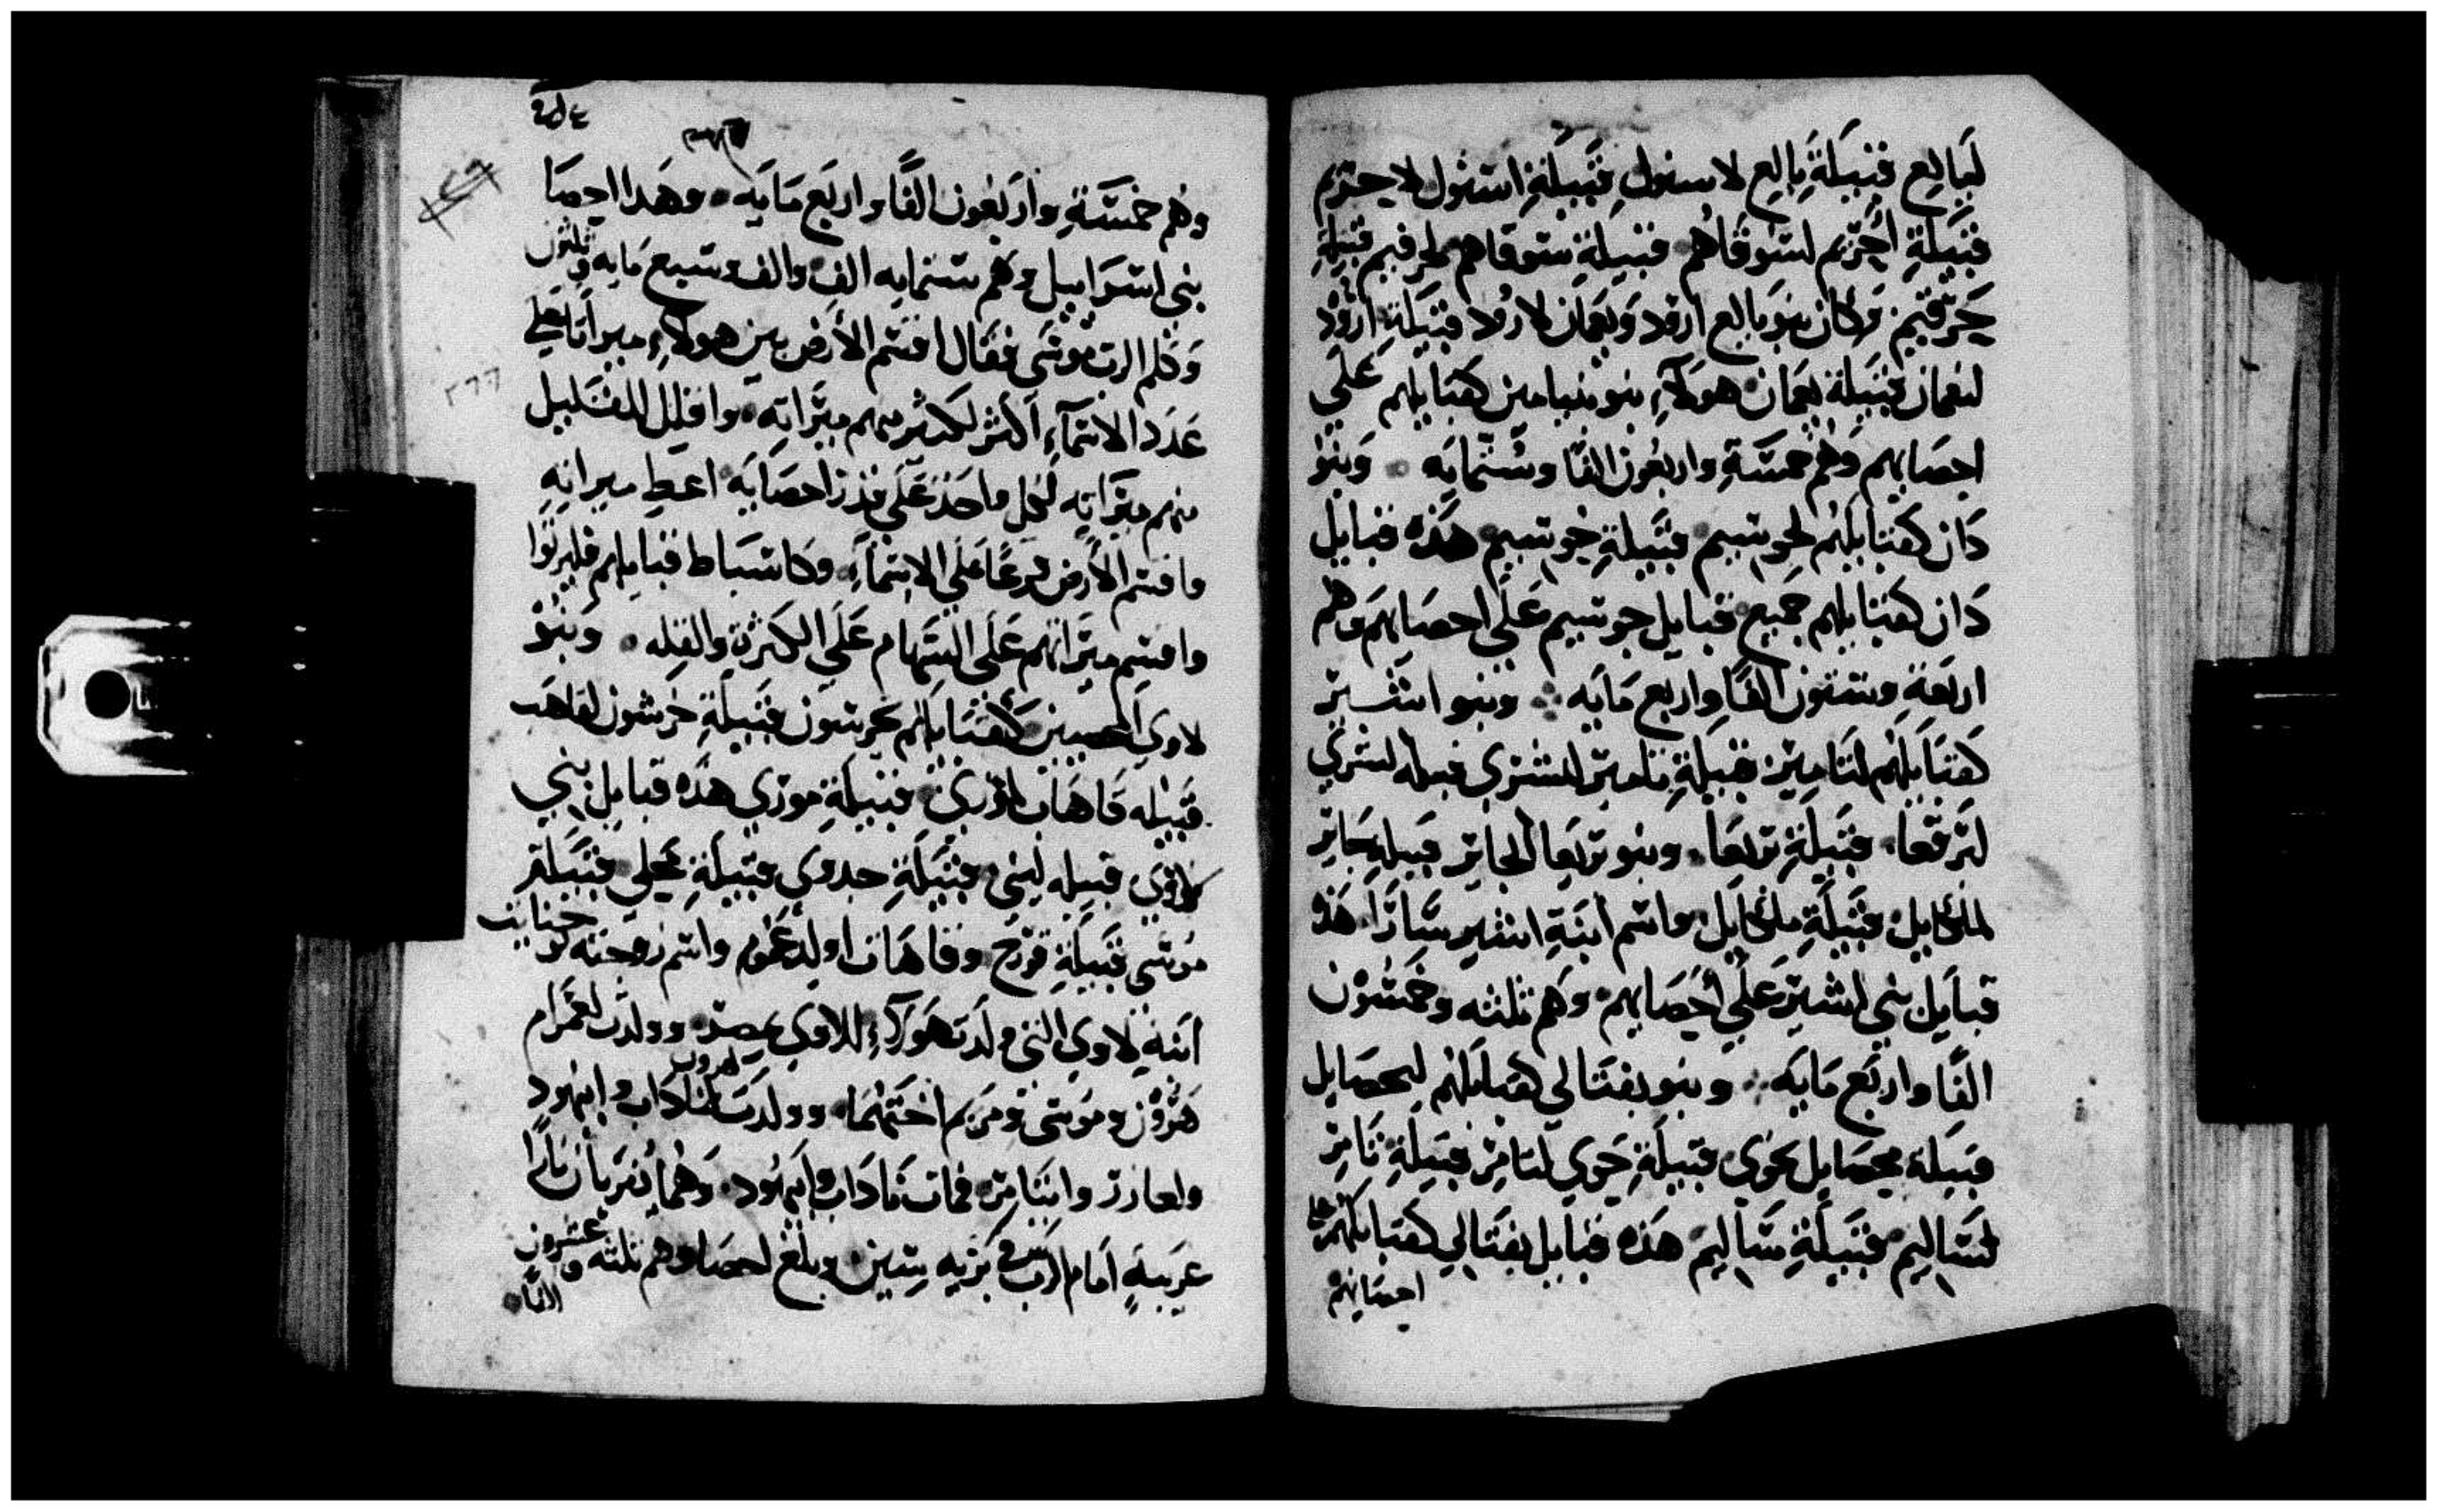 لبالع قبيلة بالع لاسبول قبيلة اسبول لاحرم
قبيلة احرم لسوفاهم قبيلة سوفاهم لحرفيم قبيلة
حرفيم وكان بنو بالع ارود ونعمان لارود قبيلة ارود
لنعمان قبيلة نعمان هولاء بنو بنيامين كقبايلهم علي
احصايهم وهم خمسة واربعون الفا وستمايه وبنو
دان كقبايلهم لحوسيم قبيلة حوسيم هذه قبايل
دان كقبايلهم جميع قبايل حوسيم علي احصايهم وهم
اربعة وستون الفا واربع مايه وبنو اشير
كقبايلهم لتامين قبيلة تامين لشري قبيله شري
لبرتعا قبيلة بريعا وبنو بريعا لجابر قبيله جابر
لملخاييل قبيلة ملخاييل واسم ابنة اشير سارا هذه
قبايل بني اشير علي احصايهم وهم ثلثه وخمسون
الفا واربع مايه وبنو نفتالي كقبايلهم ليحصايل
قبيلة يحصايل لحوي قبيلة حوي لتامر قبيلة تامر
لساليم قبيلة ساليم هذه قبايل نفتالي كقبايلهم علي
احصايهم
٢٥٤
وهم خمسة واربعون الفا واربع مايه وهذا احصا
بني اسراييل وهم ستمايه الف والف وسبع مايه وثلثون
وكلم الرب موسي فقال اقسم الارض بين هولاء ميراثا علي
٢٦٦
عدد الاسماء اكثر لكثيرهم ميراثه واقلل للقليل
منهم ميراثه لكل واحد علي قدر احصايه اعط ميراثه
واقسم الارض قرعا علي الاسماء وكاسباط قبايلهم فليرثوا
واقسم ميراثهم علي السهام علي الكثرة والقله وبنو
لاوي المحصيين كقبايلهم جرشون قبيلة جرشون لقاهب
قبيله قاهاث لمرري قبيلة موري هذه قبايل بني
لاوي قبيله لبني قبيلة حبروي قبيلة محلي قبيلة
موسي قبيلة قورح وقاهاث اولد عمرم واسم زوجته يوخابب
ابنة لاوي التي ولدت هولاء للاوي بمصر وولدت لعمرام
هرون وموسي ومريم اختهما وولدت لهرون ناداب وابيهود
ولعازر وايثامر فمات ناداب وابيهود وهما يقربان نارا
غريبة امام الرب في برية سينين وبلغ احصاوهم ثلثه وعشرون
الفا